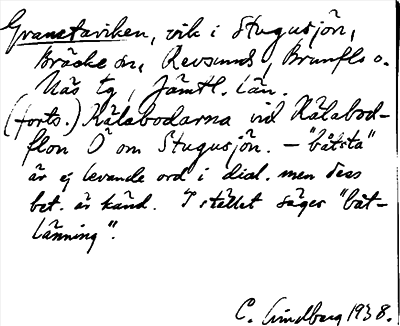 Granstaviken, vik i Stugusjön,
Bräcke sn, Revsunds, Brunflo o.
Näs tg, Jämtl. län.
(forts.) Kälabodarna vid Kälabod-
flon Ö om Stugusjön. – "båtsta"
är ej levande ord i dial. men dess
bet. är känd. I stället säges "båt-
länning".
C. Lindberg 1938.